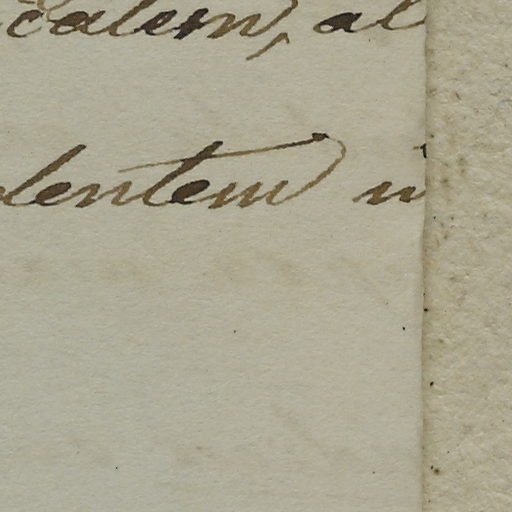 catem, al
lentem in